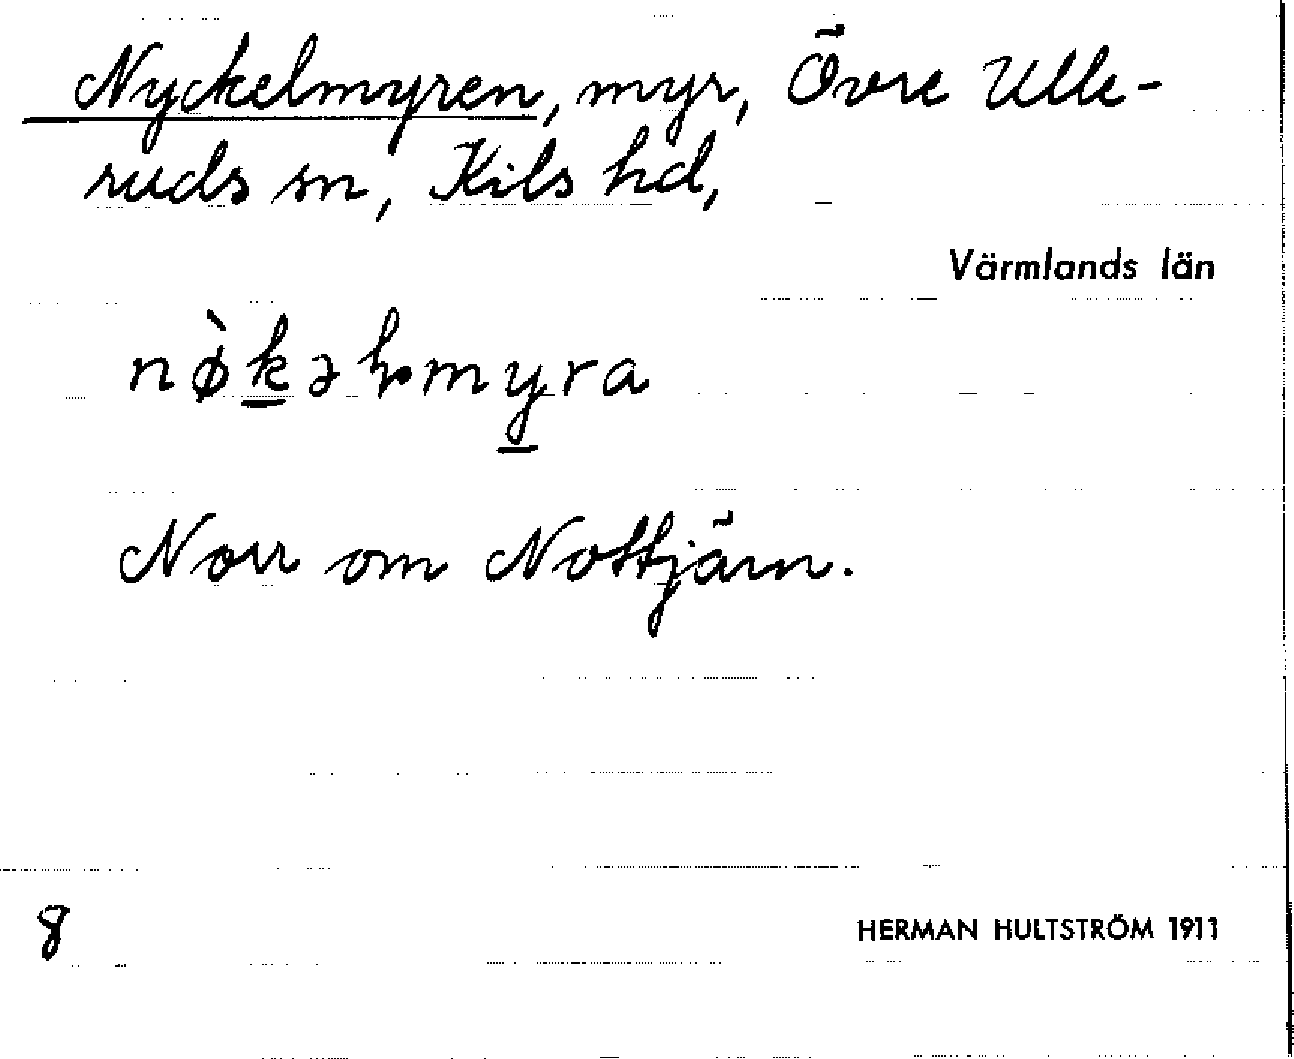 Nyckelmyren, myr, Övre Ulle-
ruds sn, Kils hd,
Värmlands län
Norr om Nottjärn.
8
HERMAN HULTSTRÖM 1911